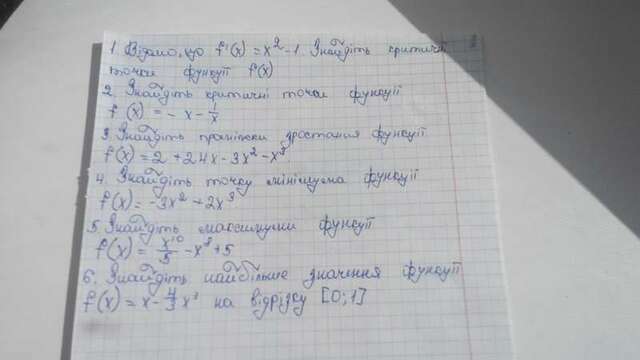 1. Відомо, що f'(x) = x² - 1. Знайдіть критичні
точки функції f(x)
2. Знайдіть критичні точки функції
f(x) = - x - 1/x
3. Знайдіть проміжки зростання функції
f(x) = 2 + 24x - 3x² - x³
4. Знайдіть точку мінімума функції
f(x) = -3x² + 2x³
5. Знайдіть максимуми функції
f(x) = x¹⁰/5 - x⁸ + 5
6. Знайдіть найбільше значення функції
f(x) = x - 4/3 x³ на відрізку [0; 1]